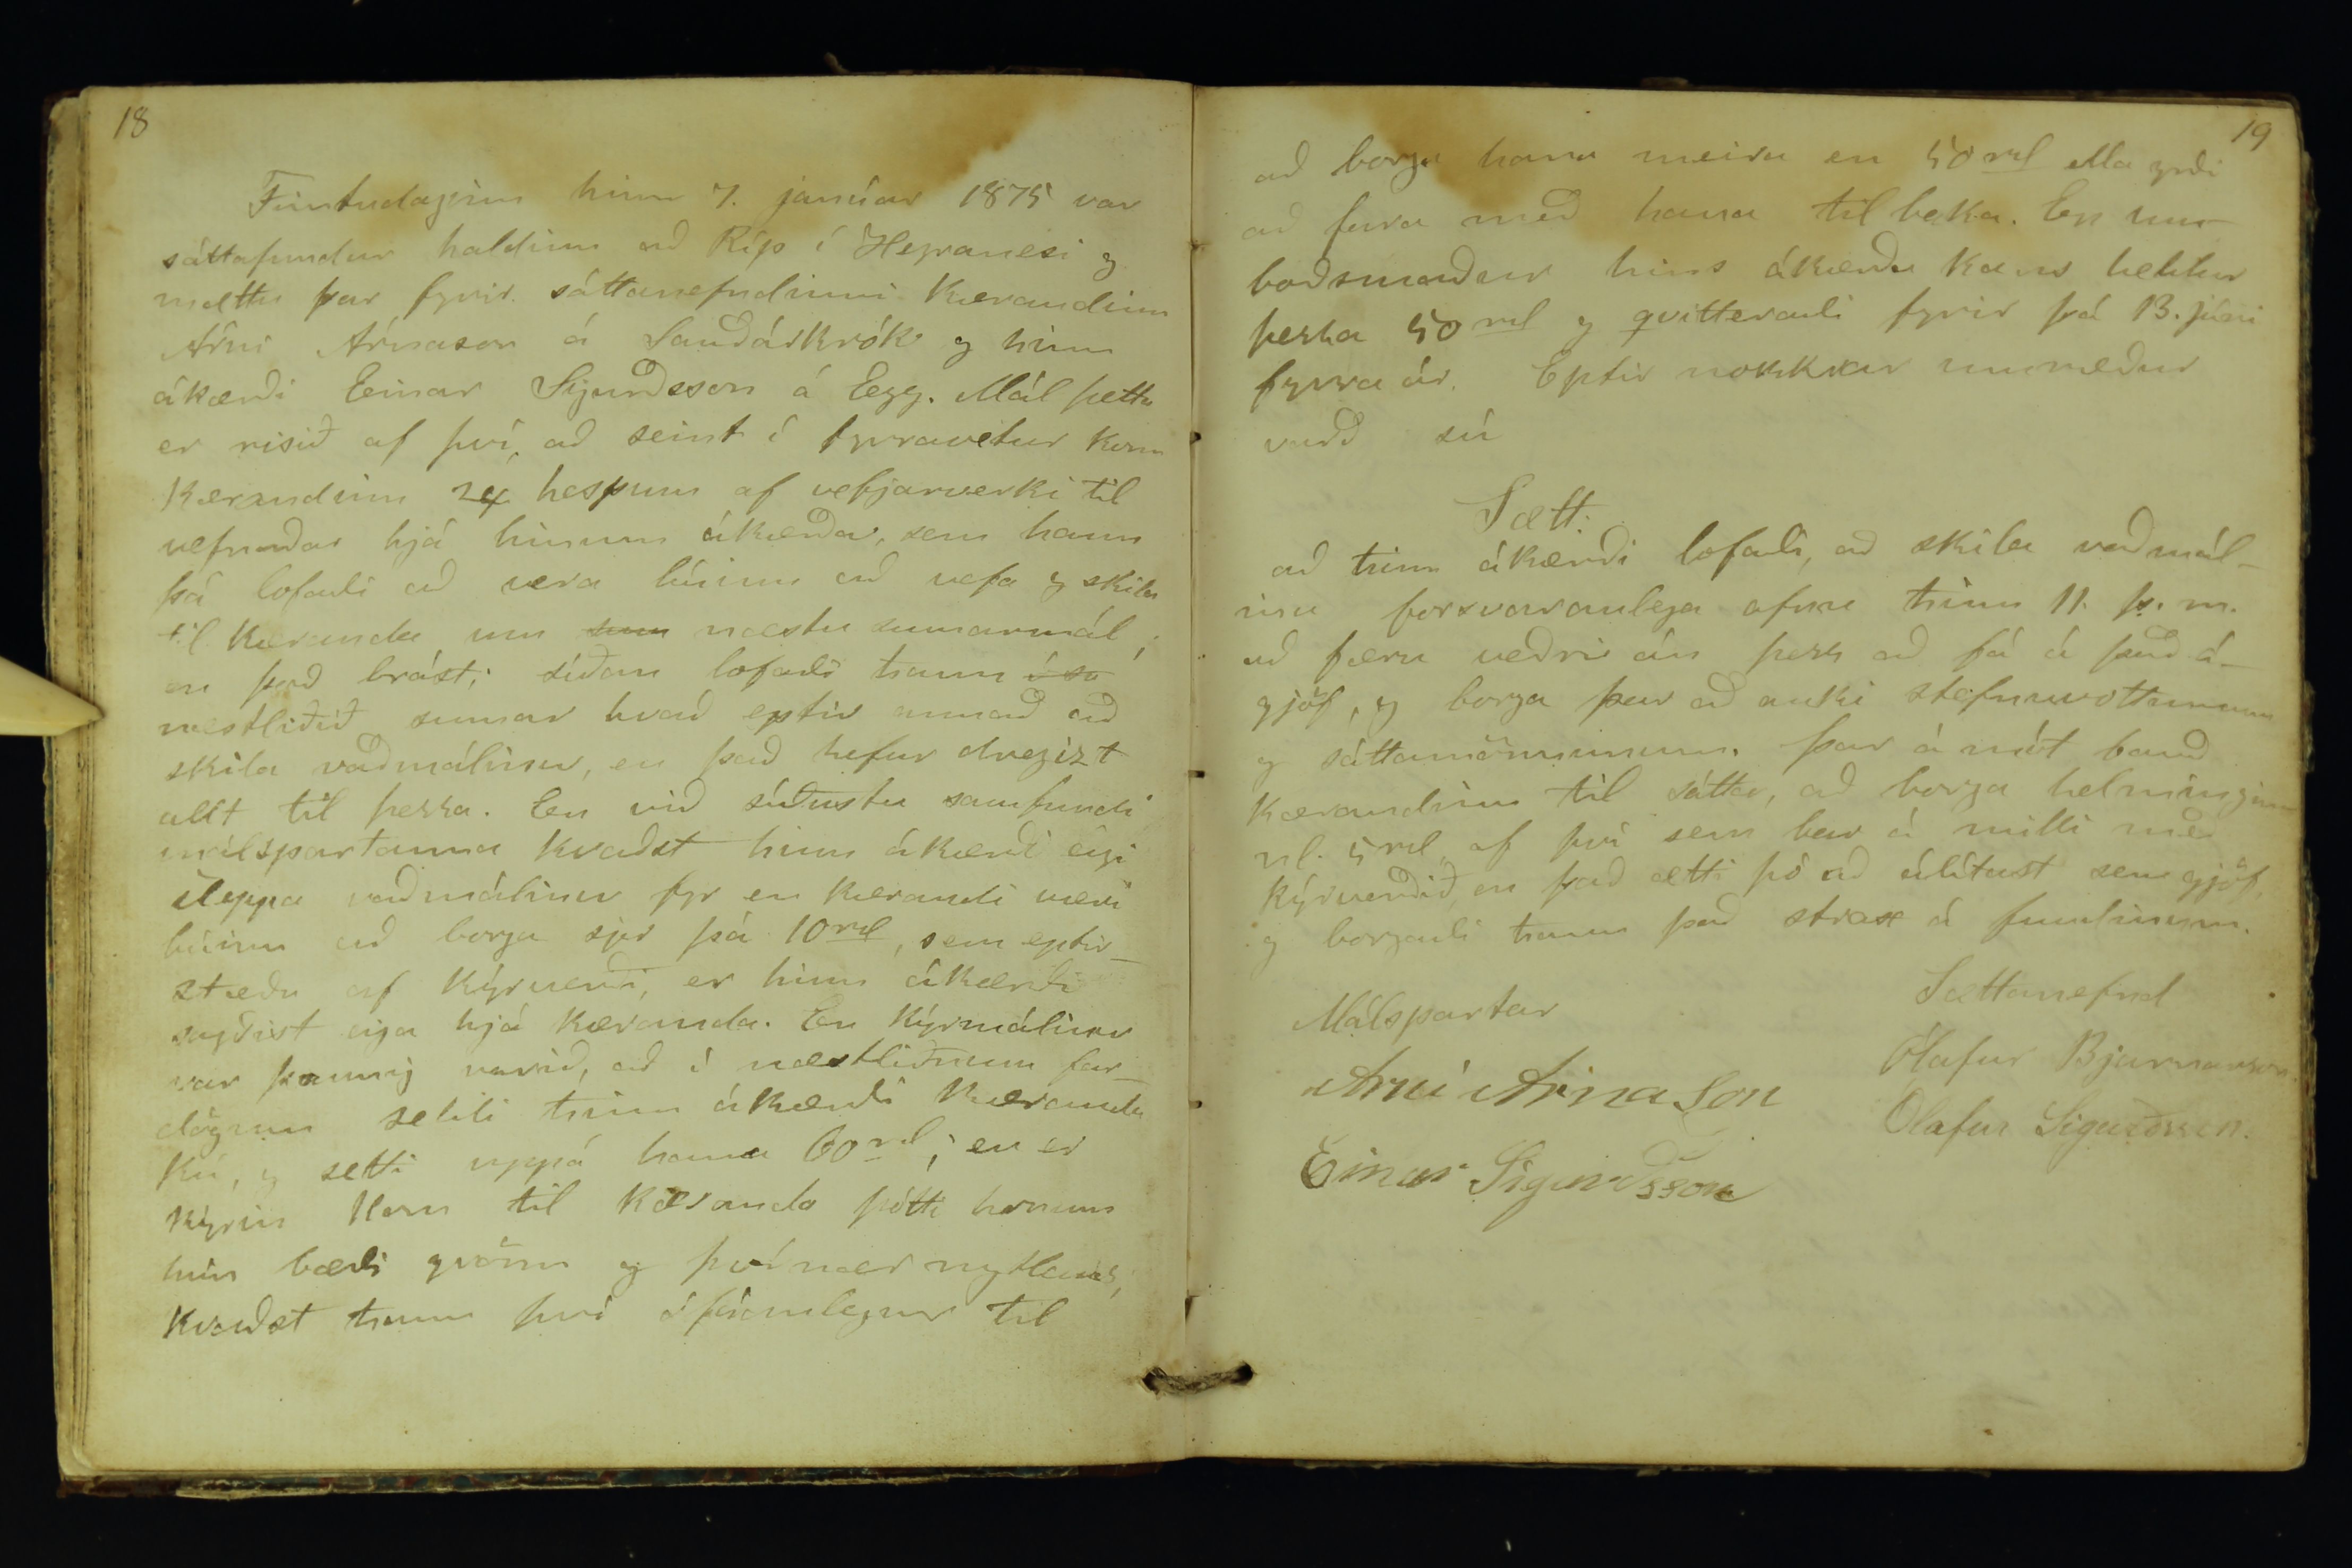 18
Fimtudaginn hinn 7. janúar 1875 var
sáttafundur haldinn að Ríp í Hegranesi og
mættu þar fyrir sáttanefndinni kærandinn
Árni Árnason á Sauðárkrók og hinn
ákærði Einar Sigurðsson á Egg. Mál þetta
er risið af því, að seint í fyrravetur kom
kærandinn 24 hespum af vefjarverki til
vefnaðar hjá hinum ákærða, sem hann
þá lofaði að vera búinn að vefa og skila
til kæranda um sum næstu sumarmál,
en það brást; síðan lofaði hann í so
næstliðið sumar hvað eptir annað að
skila vaðmálinu, en það hefur dregizt
allt til þessa. En við síðustu samfundi
málspartanna kvaðst hinn ákærði eigi
sleppa vaðmálinu fyr en kærandi væri
búinn að borga sjer þá 10 rd, sem eptir-
stæðu af kýrverði, er hinn ákærði
sagðist eiga hjá kæranda. En kýrmálinu
var þannig varið, að í næstliðnum far-
dögum seldi hinn ákærði kæranda
kú, og setti uppá hana 60 rd; en er
kýrin kom til kæranda þótti honum
hún bæði grönn og þvínær nytlaus,
kvaðst hann því ófáanlegur til
19
að borga hana meira en 50 rd ella yrði
að fara með hana til baka. En um-
boðsmaður hins ákærða kaus heldur
þessa 50 rd og qvitteraði fyrir þá 13. júní
fyrra ár. Eptir nokkrar umræður
varð sú
Sætt:
að hinn ákærði lofaði, að skila vaðmál-
inu forsvaranlega ofnu hinn 11. þ. m.
að færu veðri án þess að fá á það á-
gjöf, og borga þar að auki stefnuvottunum
og sáttamönnunum. Þar á mót bauð
kærandinn til sátta, að borga helminginn
nl. 5 rd af því sem bar á milli með
kýrverðið, en það ætti þó að álítast sem gjöf,
og borgaði hann það strax á fundinum.
Málspartar
Árni Árnason
Einar Sigurðsson
Sættanefnd
Ólafur Bjarnarson
Ólafur Sigurðsson.